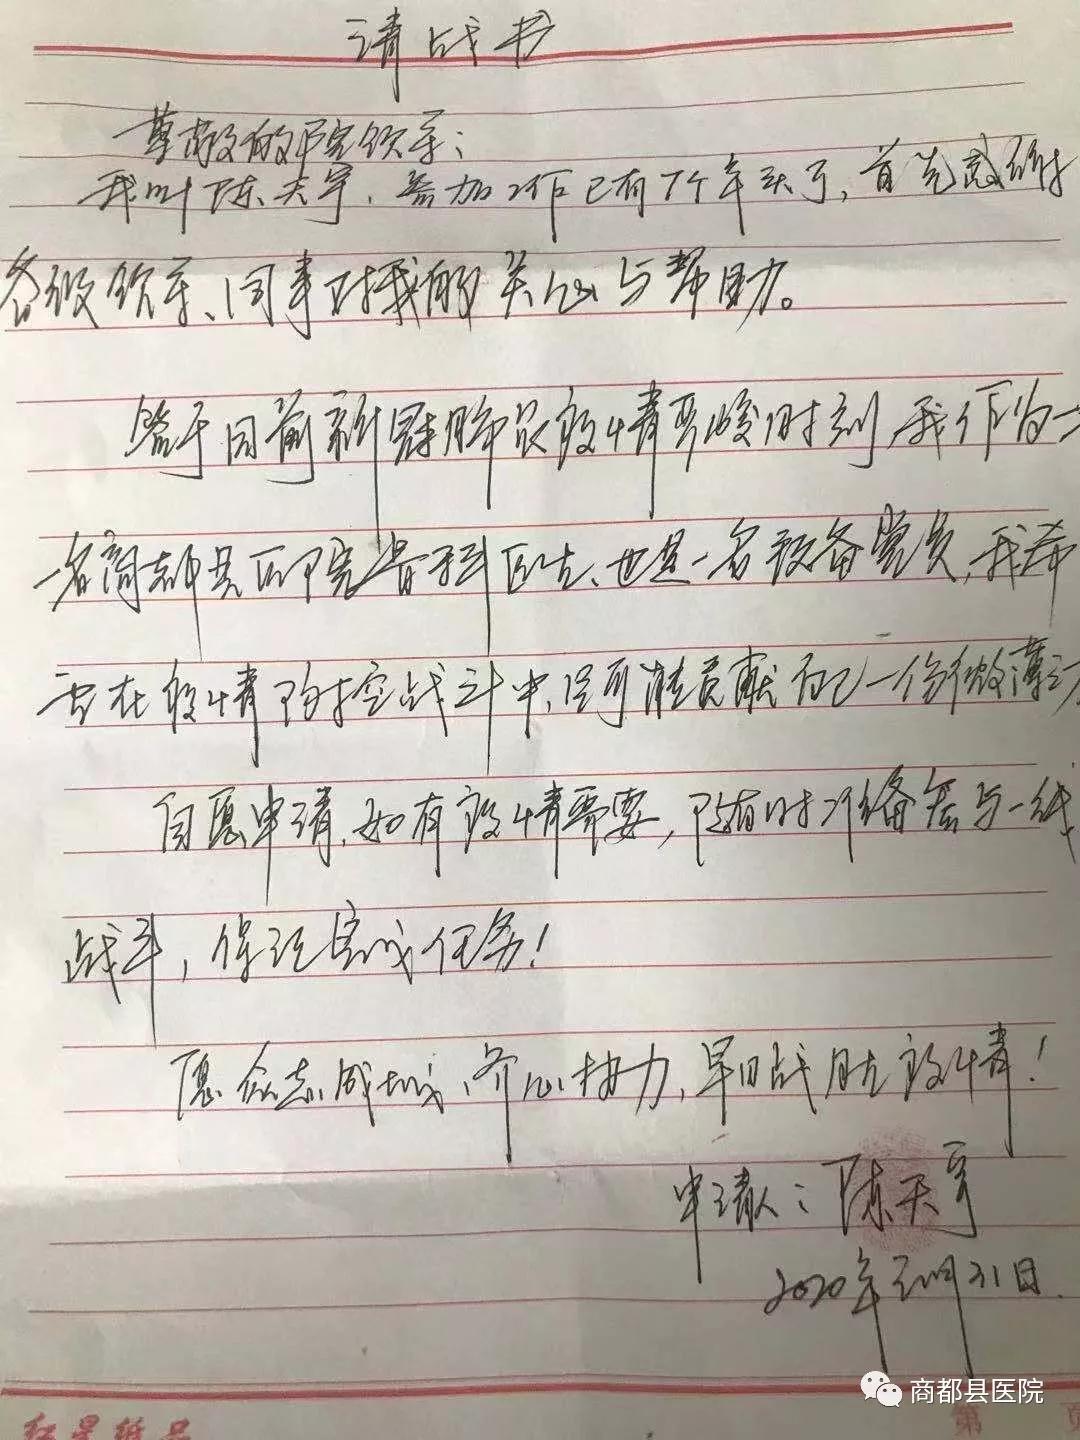 请战书
尊敬的院领导：
我叫陈天宇，参加工作已有7个年头了，首先感谢
各级领导、同事对我的关心与帮助。
鉴于目前新冠肺炎疫情严峻时刻，我作为一
名商都县医院骨科医生、也是一名预备党员，我希
望在疫情防控战斗中，尽可能贡献自己一份微薄之力
自愿申请，如有疫情需要，随时准备参与一线
战斗，保证完成任务！
愿众志成城、齐心协力，早日战胜疫情！
申请人：陈天宇
2020年 月31日.
商都县医院
红星纸品
第 页